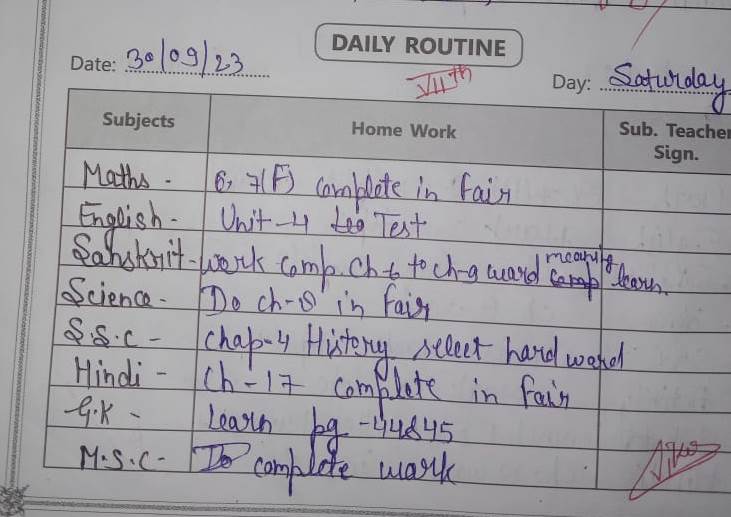 DAILY ROUTINE
Date: 30/09/23
VIIth
Day: Saturday
Subjects Home Work Sub. Teacher Sign.
Maths - 6, 7(F) complete in fair
English - Unit-4 Test
Sanskrit - work comp. Ch-6 to ch-9 ward meaning learn.
Science - Do ch-8 in fair
S.S.C - Chap-4 History select hard word
Hindi - Ch-17 complete in fair
G.K - Learn pg-44&45
M.S.C- complete work